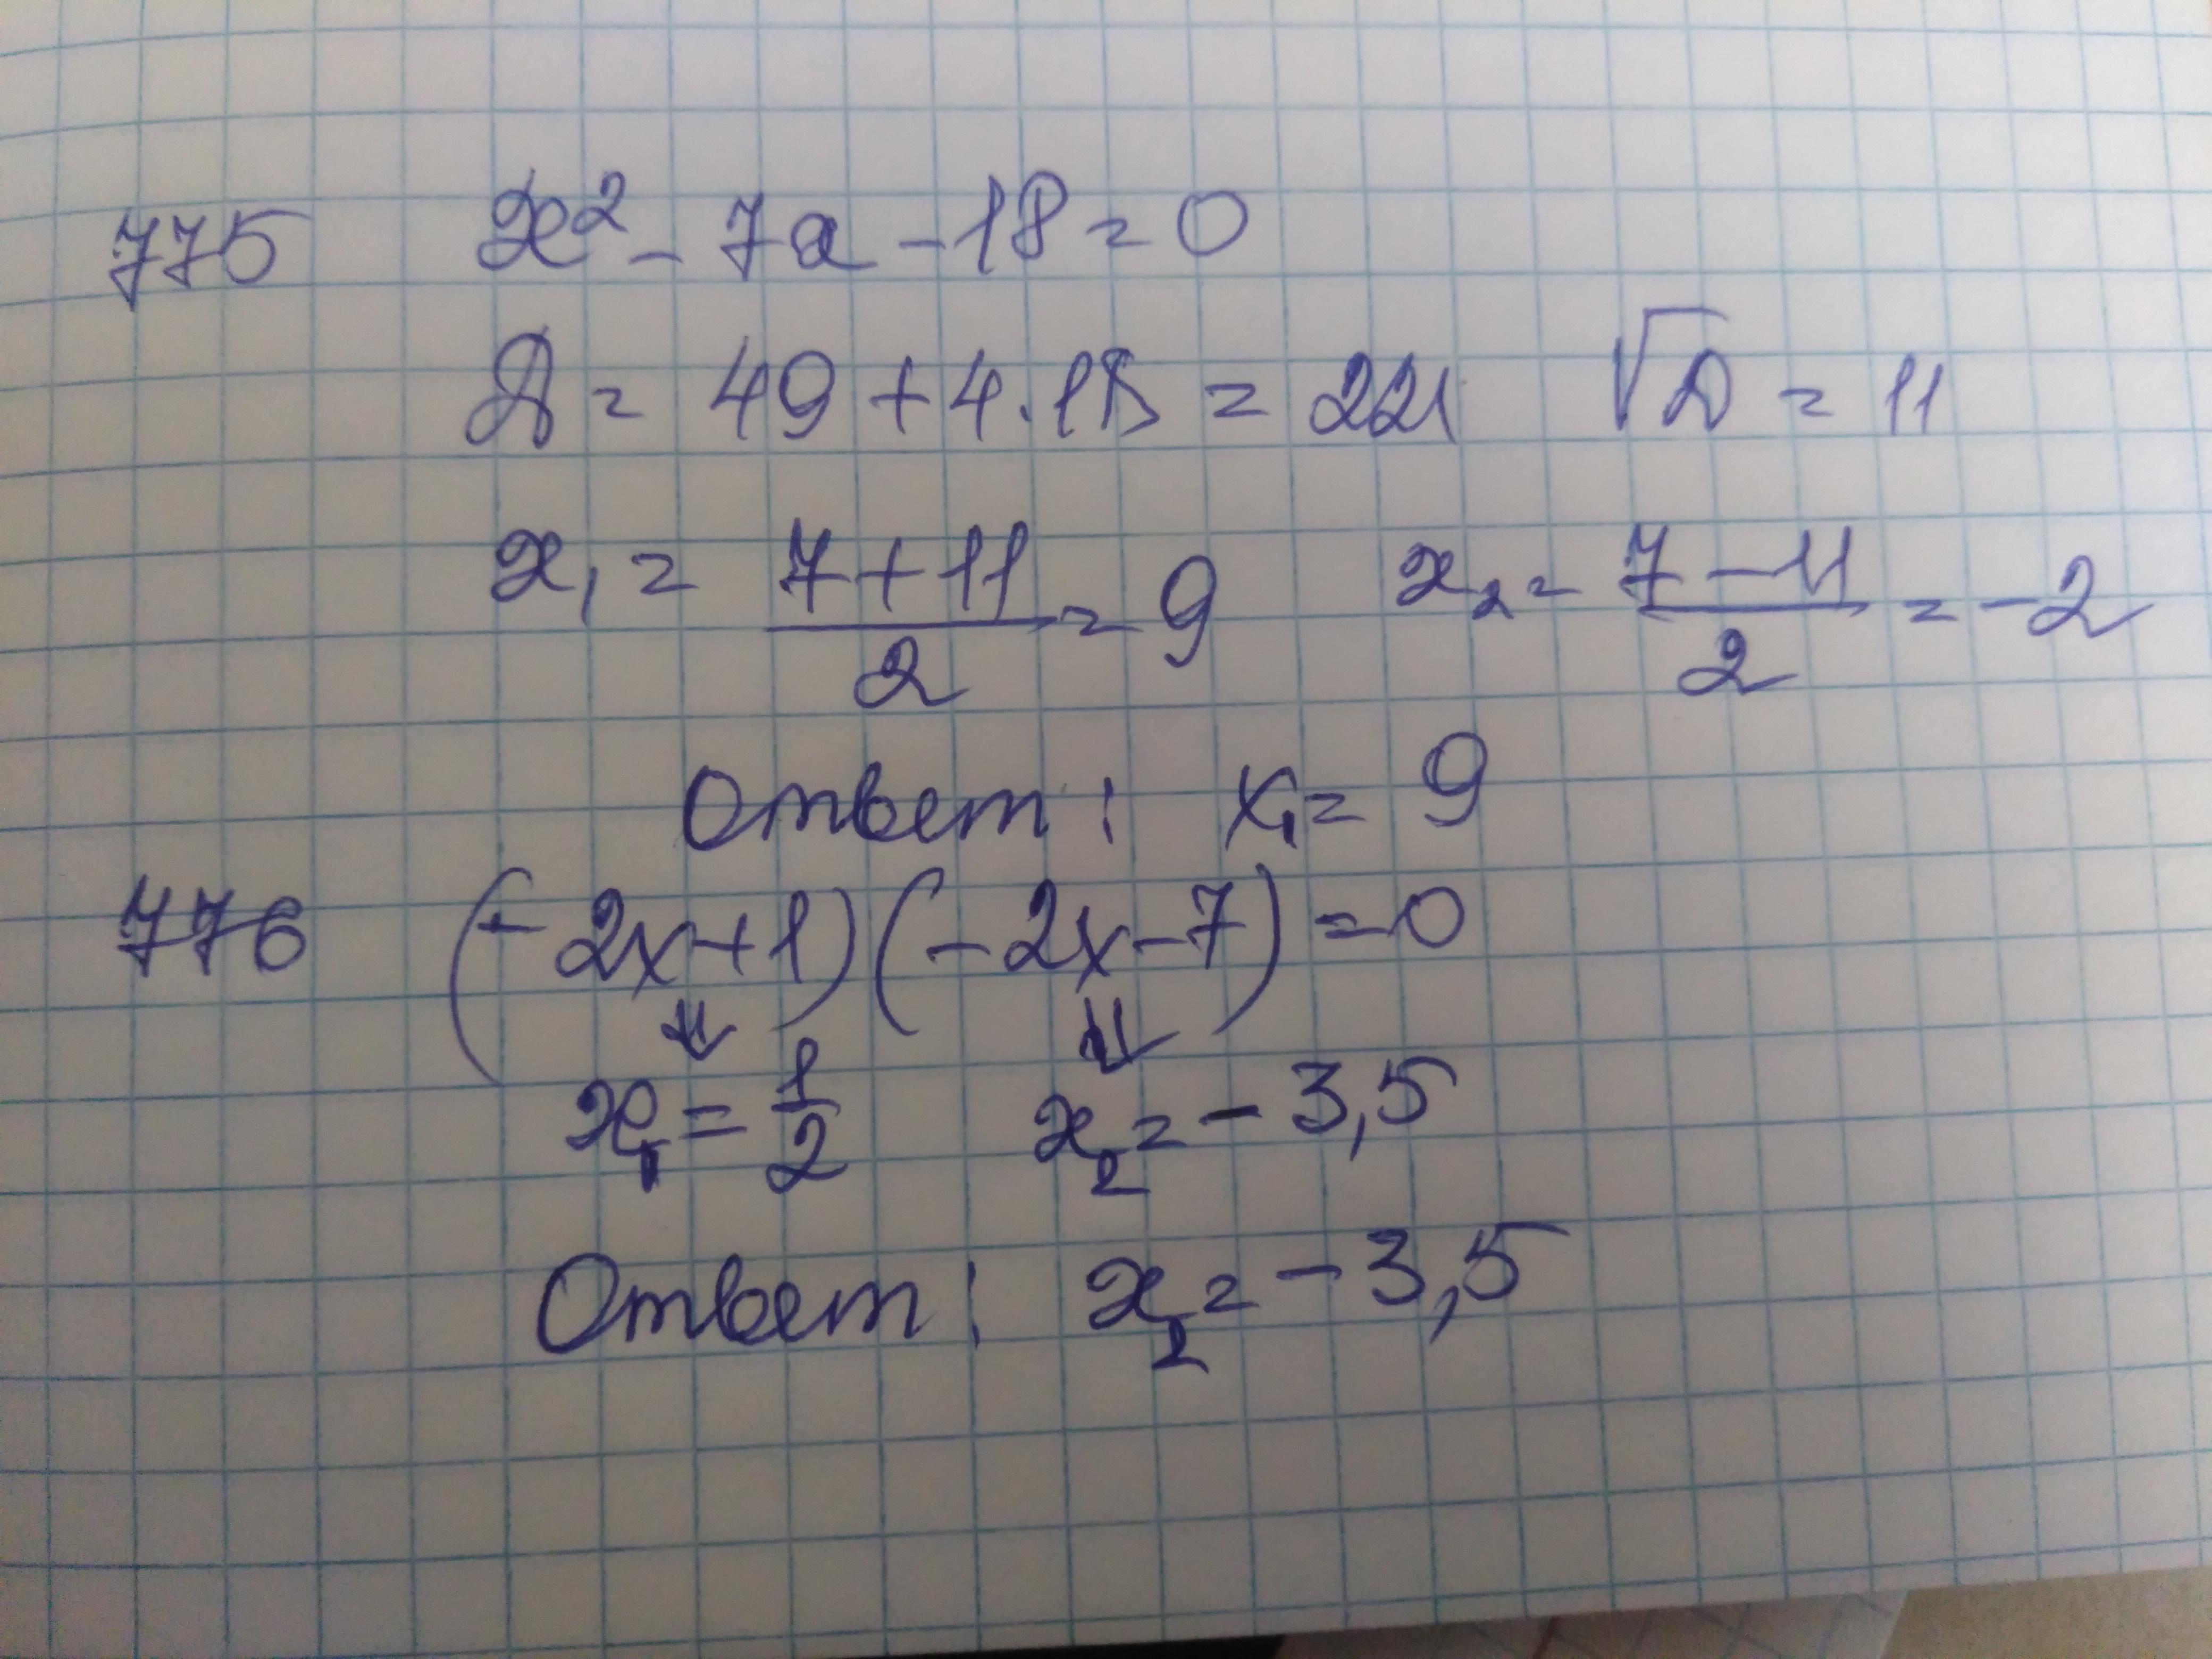 775 x² - 7x - 18 = 0
D = 49 + 4·18 = 221 √D = 11
x₁ = (7 + 11)/2 = 9 x₂ = (7 - 11)/2 = -2
Ответ: x₁ = 9
776 (-2x+1)(-2x-7)=0
⇓ ⇓
x₁ = 1/2 x₂ = -3,5
Ответ: x₂ = -3,5